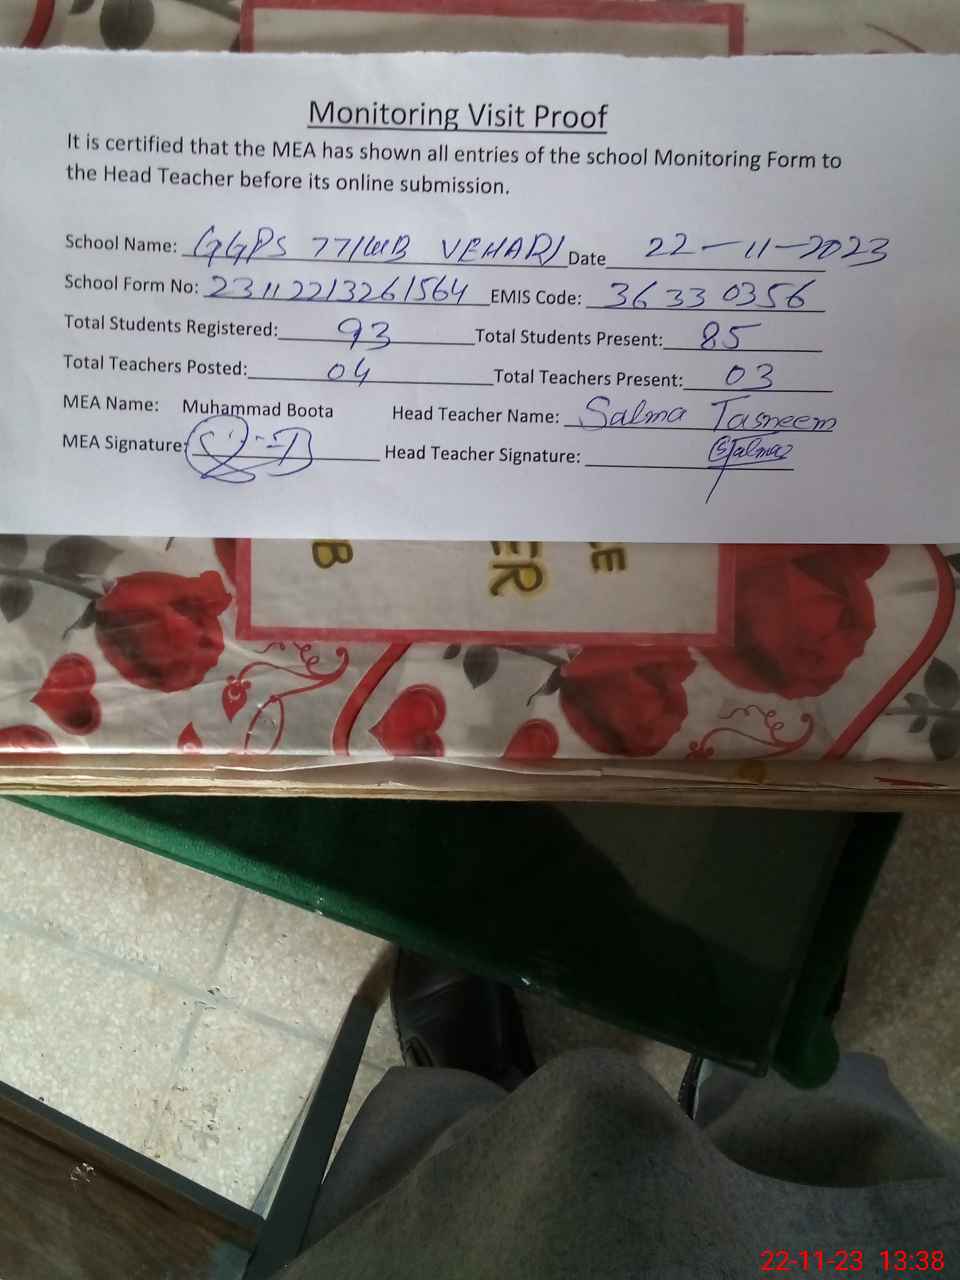 Monitoring Visit Proof
It is certified that the MEA has shown all entries of the school Monitoring Form to
the Head Teacher before its online submission.
School Name: GGPS 77/WB VEHARI Date 22-11-2023
School Form No: 23112213261564 EMIS Code: 36330356
Total Students Registered: 93 Total Students Present: 85
Total Teachers Posted: 04 Total Teachers Present: 03
MEA Name: Muhammad Boota Head Teacher Name: Salma Tasneem
MEA Signature: Head Teacher Signature:
B ER E
22-11-23 13:38